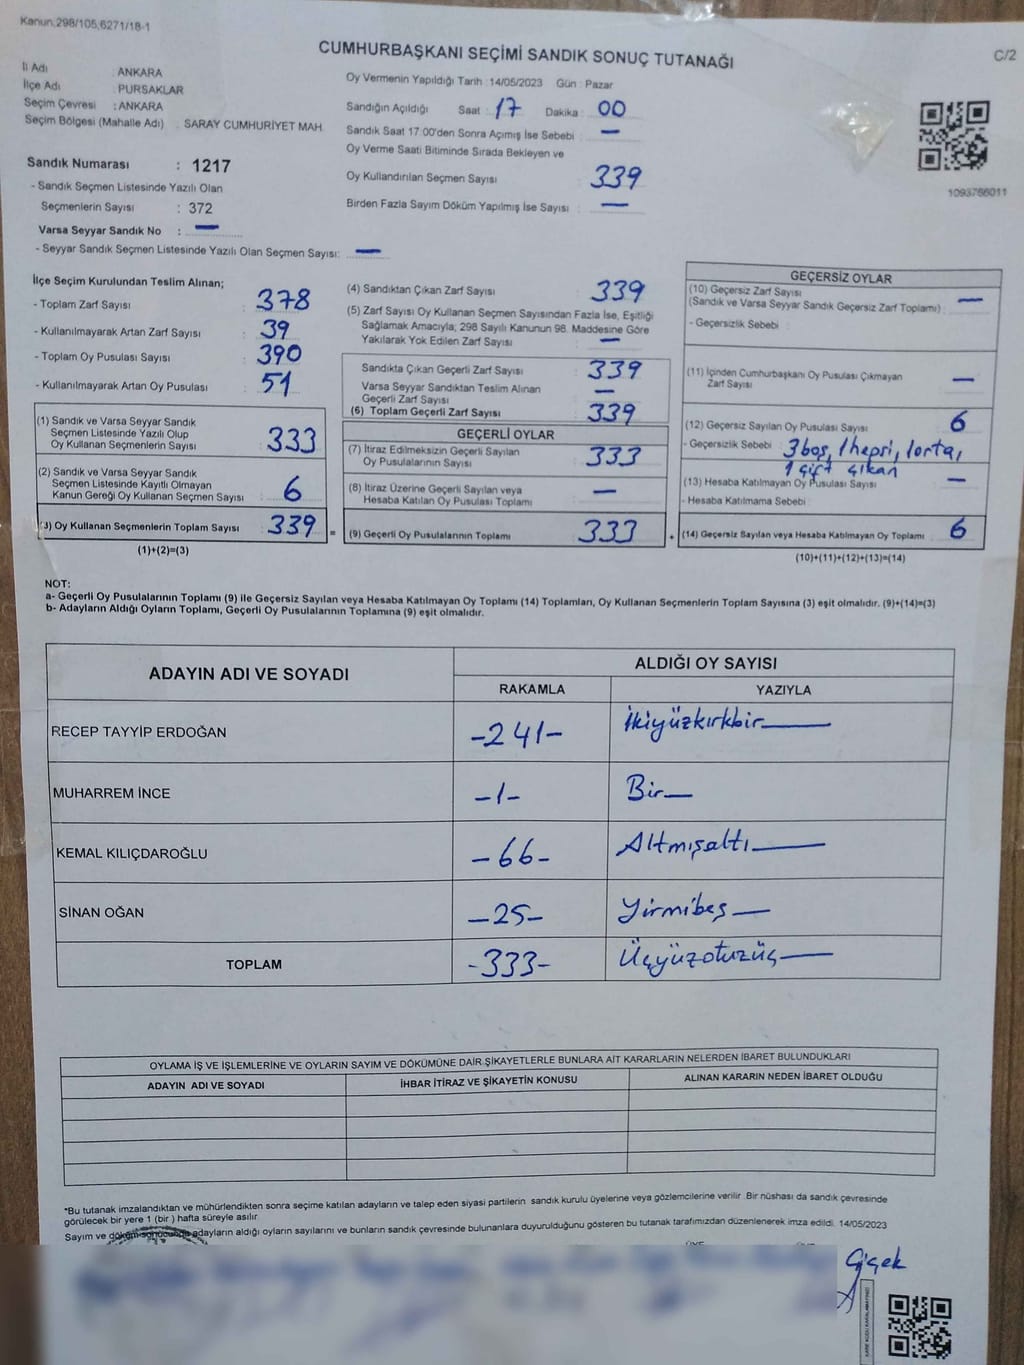 Kanun,298/105,6271/18-1
CUMHURBAŞKANI SEÇİMİ SANDIK SONUÇ TUTANAĞI
C/2
İl Adı : ANKARA
İlçe Adı : PURSAKLAR
Seçim Çevresi : ANKARA
Seçim Bölgesi (Mahalle Adı) . SARAY CUMHURİYET MAH.
Sandık Numarası : 1217
- Sandık Seçmen Listesinde Yazılı Olan
Seçmenlerin Sayısı : 372
Varsa Seyyar Sandık No : —
- Seyyar Sandık Seçmen Listesinde Yazılı Olan Seçmen Sayısı: —
Oy Vermenin Yapıldığı Tarih :14/05/2023 Gün : Pazar
Sandığın Açıldığı Saat : 17 Dakika : 00
Sandık Saat 17:00'den Sonra Açımış İse Sebebi : —
Oy Verme Saati Bitiminde Sırada Bekleyen ve
Oy Kullandırılan Seçmen Sayısı : 339
Birden Fazla Sayım Döküm Yapılmış İse Sayısı : —
1093766011
İlçe Seçim Kurulundan Teslim Alınan;
- Toplam Zarf Sayısı : 378
- Kullanılmayarak Artan Zarf Sayısı : 39
- Toplam Oy Pusulası Sayısı : 390
- Kullanılmayarak Artan Oy Pusulası : 51
(1) Sandık ve Varsa Seyyar Sandık
Seçmen Listesinde Yazılı Olup
Oy Kullanan Seçmenlerin Sayısı : 333
(2) Sandık ve Varsa Seyyar Sandık
Seçmen Listesinde Kayıtlı Olmayan
Kanun Gereği Oy Kullanan Seçmen Sayısı : 6
(3) Oy Kullanan Seçmenlerin Toplam Sayısı : 339 =
(1)+(2)=(3)
(4) Sandıktan Çıkan Zarf Sayısı : 339
(5) Zarf Sayısı Oy Kullanan Seçmen Sayısından Fazla İse, Eşitliği
Sağlamak Amacıyla; 298 Sayılı Kanunun 98. Maddesine Göre
Yakılarak Yok Edilen Zarf Sayısı : —
Sandıkta Çıkan Geçerli Zarf Sayısı : 339
Varsa Seyyar Sandıktan Teslim Alınan
Geçerli Zarf Sayısı : —
(6) Toplam Geçerli Zarf Sayısı : 339
GEÇERLİ OYLAR
(7) İtiraz Edilmeksizin Geçerli Sayılan
Oy Pusulalarının Sayısı : 333
(8) İtiraz Üzerine Geçerli Sayılan veya
Hesaba Katılan Oy Pusulası Toplamı : —
(9) Geçerli Oy Pusulalarının Toplamı : 333 +
GEÇERSİZ OYLAR
(10) Geçersiz Zarf Sayısı
(Sandık ve Varsa Seyyar Sandık Geçersiz Zarf Toplamı) : —
- Geçersizlik Sebebi :
(11) İçinden Cumhurbaşkanı Oy Pusulası Çıkmayan
Zarf Sayısı : —
(12) Geçersiz Sayılan Oy Pusulası Sayısı : 6
- Geçersizlik Sebebi : 3 boş, 1 hepsi, 1 orta,
1 çift çıkan
(13) Hesaba Katılmayan Oy Pusulası Sayısı : —
- Hesaba Katılmama Sebebi :
(14) Geçersiz Sayılan veya Hesaba Katılmayan Oy Toplamı : 6
(10)+(11)+(12)+(13)=(14)
NOT:
a- Geçerli Oy Pusulalarının Toplamı (9) ile Geçersiz Sayılan veya Hesaba Katılmayan Oy Toplamı (14) Toplamları, Oy Kullanan Seçmenlerin Toplam Sayısına (3) eşit olmalıdır. (9)+(14)=(3)
b- Adayların Aldığı Oyların Toplamı, Geçerli Oy Pusulalarının Toplamına (9) eşit olmalıdır.
ADAYIN ADI VE SOYADI
ALDIĞI OY SAYISI
RAKAMLA YAZIYLA
RECEP TAYYİP ERDOĞAN -241- İkiyüzkırkbir—
MUHARREM İNCE -1- Bir—
KEMAL KILIÇDAROĞLU -66- Altmışaltı—
SİNAN OĞAN -25- Yirmibeş—
TOPLAM -333- Üçyüzotuzüç—
OYLAMA İŞ VE İŞLEMLERİNE VE OYLARIN SAYIM VE DÖKÜMÜNE DAİR ŞİKAYETLERLE BUNLARA AİT KARARLARIN NELERDEN İBARET BULUNDUKLARI
ADAYIN ADI VE SOYADI İHBAR İTİRAZ VE ŞİKAYETİN KONUSU ALINAN KARARIN NEDEN İBARET OLDUĞU
*Bu tutanak imzalandıktan ve mühürlendikten sonra seçime katılan adayların ve talep eden siyasi partilerin sandık kurulu üyelerine veya gözlemcilerine verilir .Bir nüshası da sandık çevresinde
görülecek bir yere 1 (bir ) hafta süreyle asılır.
Sayım ve döküm sonucunda adayların aldığı oyların sayılarını ve bunların sandık çevresinde bulunanlara duyurulduğunu gösteren bu tutanak tarafımızdan düzenlenerek imza edildi. 14/05/2023
Çiçek